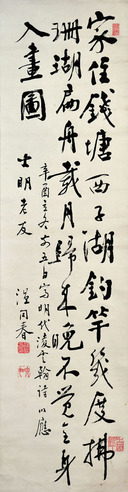 家住錢塘西子湖釣竿幾度拂
珊瑚扁舟載月歸來晚不覺全身
入畫圖
辛酉立冬前五日寫明代凌雲翰詩以應
士明老友
溫同春